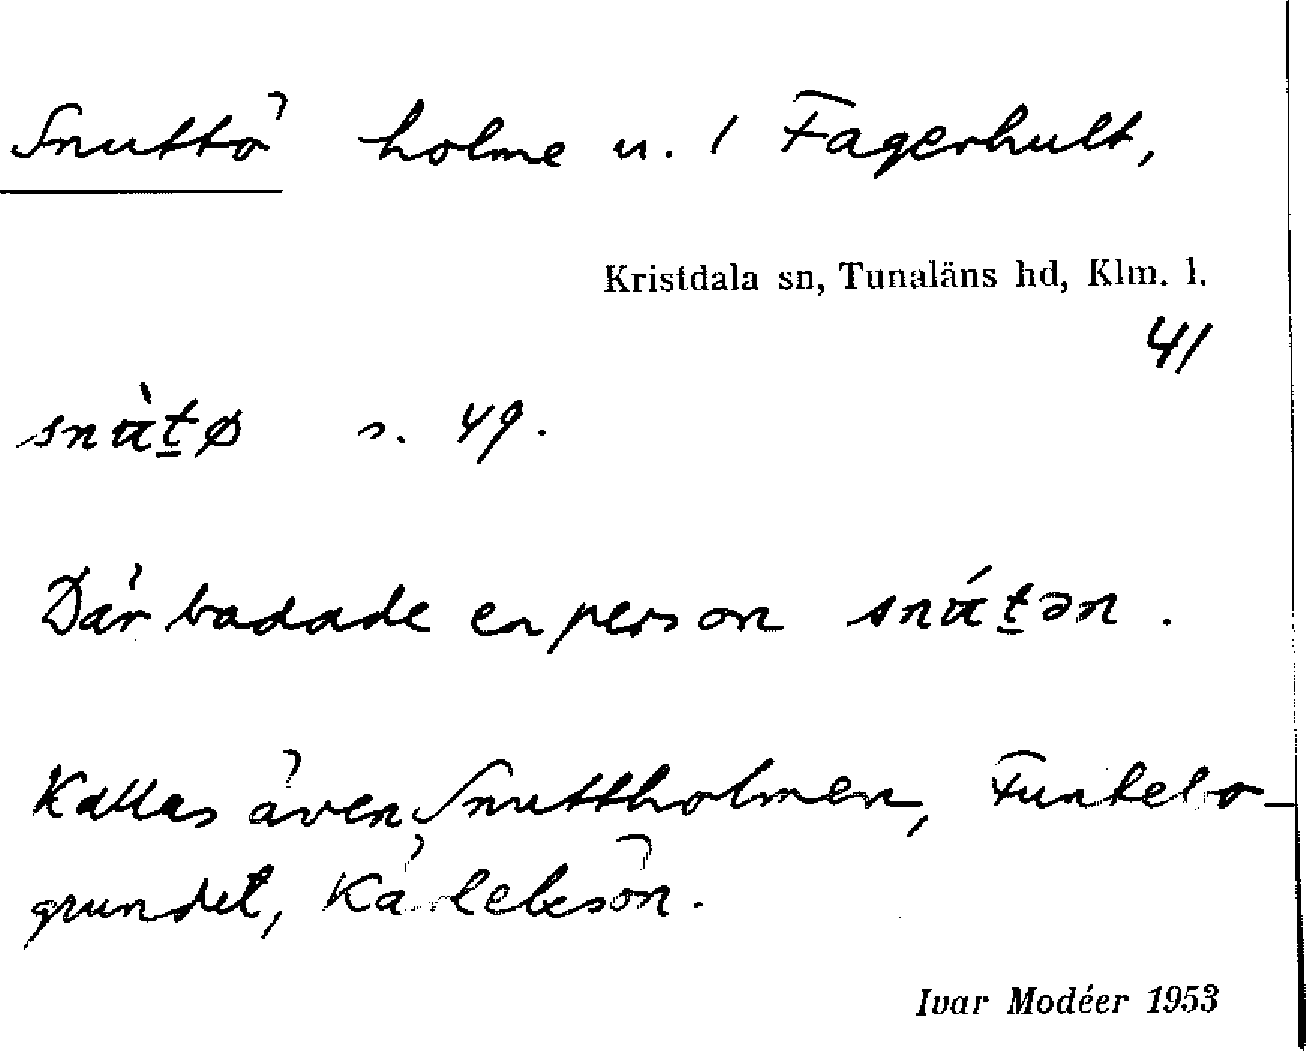 Snuttö holme u. 1 Fagerhult,
Kristdala sn, Tunaläns hd, Klm. l.
41
s. 49.
Där badade en person
Kallas även Snuttholmen,
grundet,
Ivar Modéer 1953